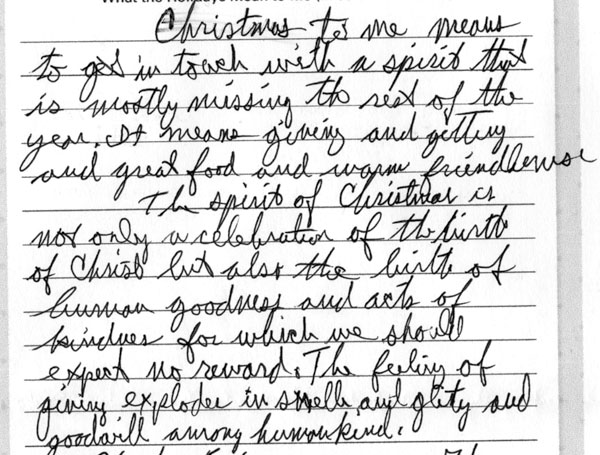 What the Holidays mean to me
Christmas to me means
to get in touch with a spirit that
is mostly missing the rest of the
year. It means giving and getting
and great food and warm friendliness
The spirit of Christmas is
not only a celebration of the birth
of Christ but also the birth of
human goodness and acts of
kindnes for which we should
expect no reward. The feeling of
giving explodes in smells and and
goodwill among humankind.